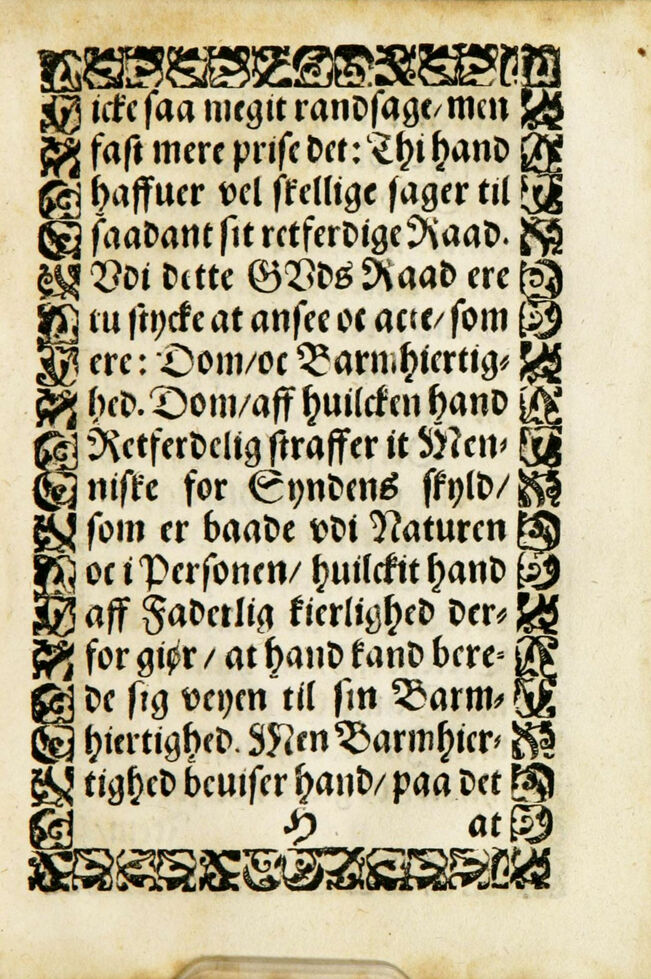 icke saa megit randsage/ men
fast mere prise det: Thi hand
haffuer vel skellige sager til
saadant sit retferdige Raad.
Vdi dette GVds Raad ere
tu stycke at ansee oc acte/ som
ere: Dom/oc Barmhiertig⸗
hed. Dom/aff huilcken hand
Retferdelig straffer it Men⸗
niske for Syndens skyld/
som er baade vdi Naturen
oc i Personen/ huilckit hand
aff Faderlig kierlighed der⸗
for giør / at hand kand bere⸗
de sig veyen til sin Barm⸗
hiertighed. Men Barmhier⸗
tighed beuiser hand/ paa det
H at